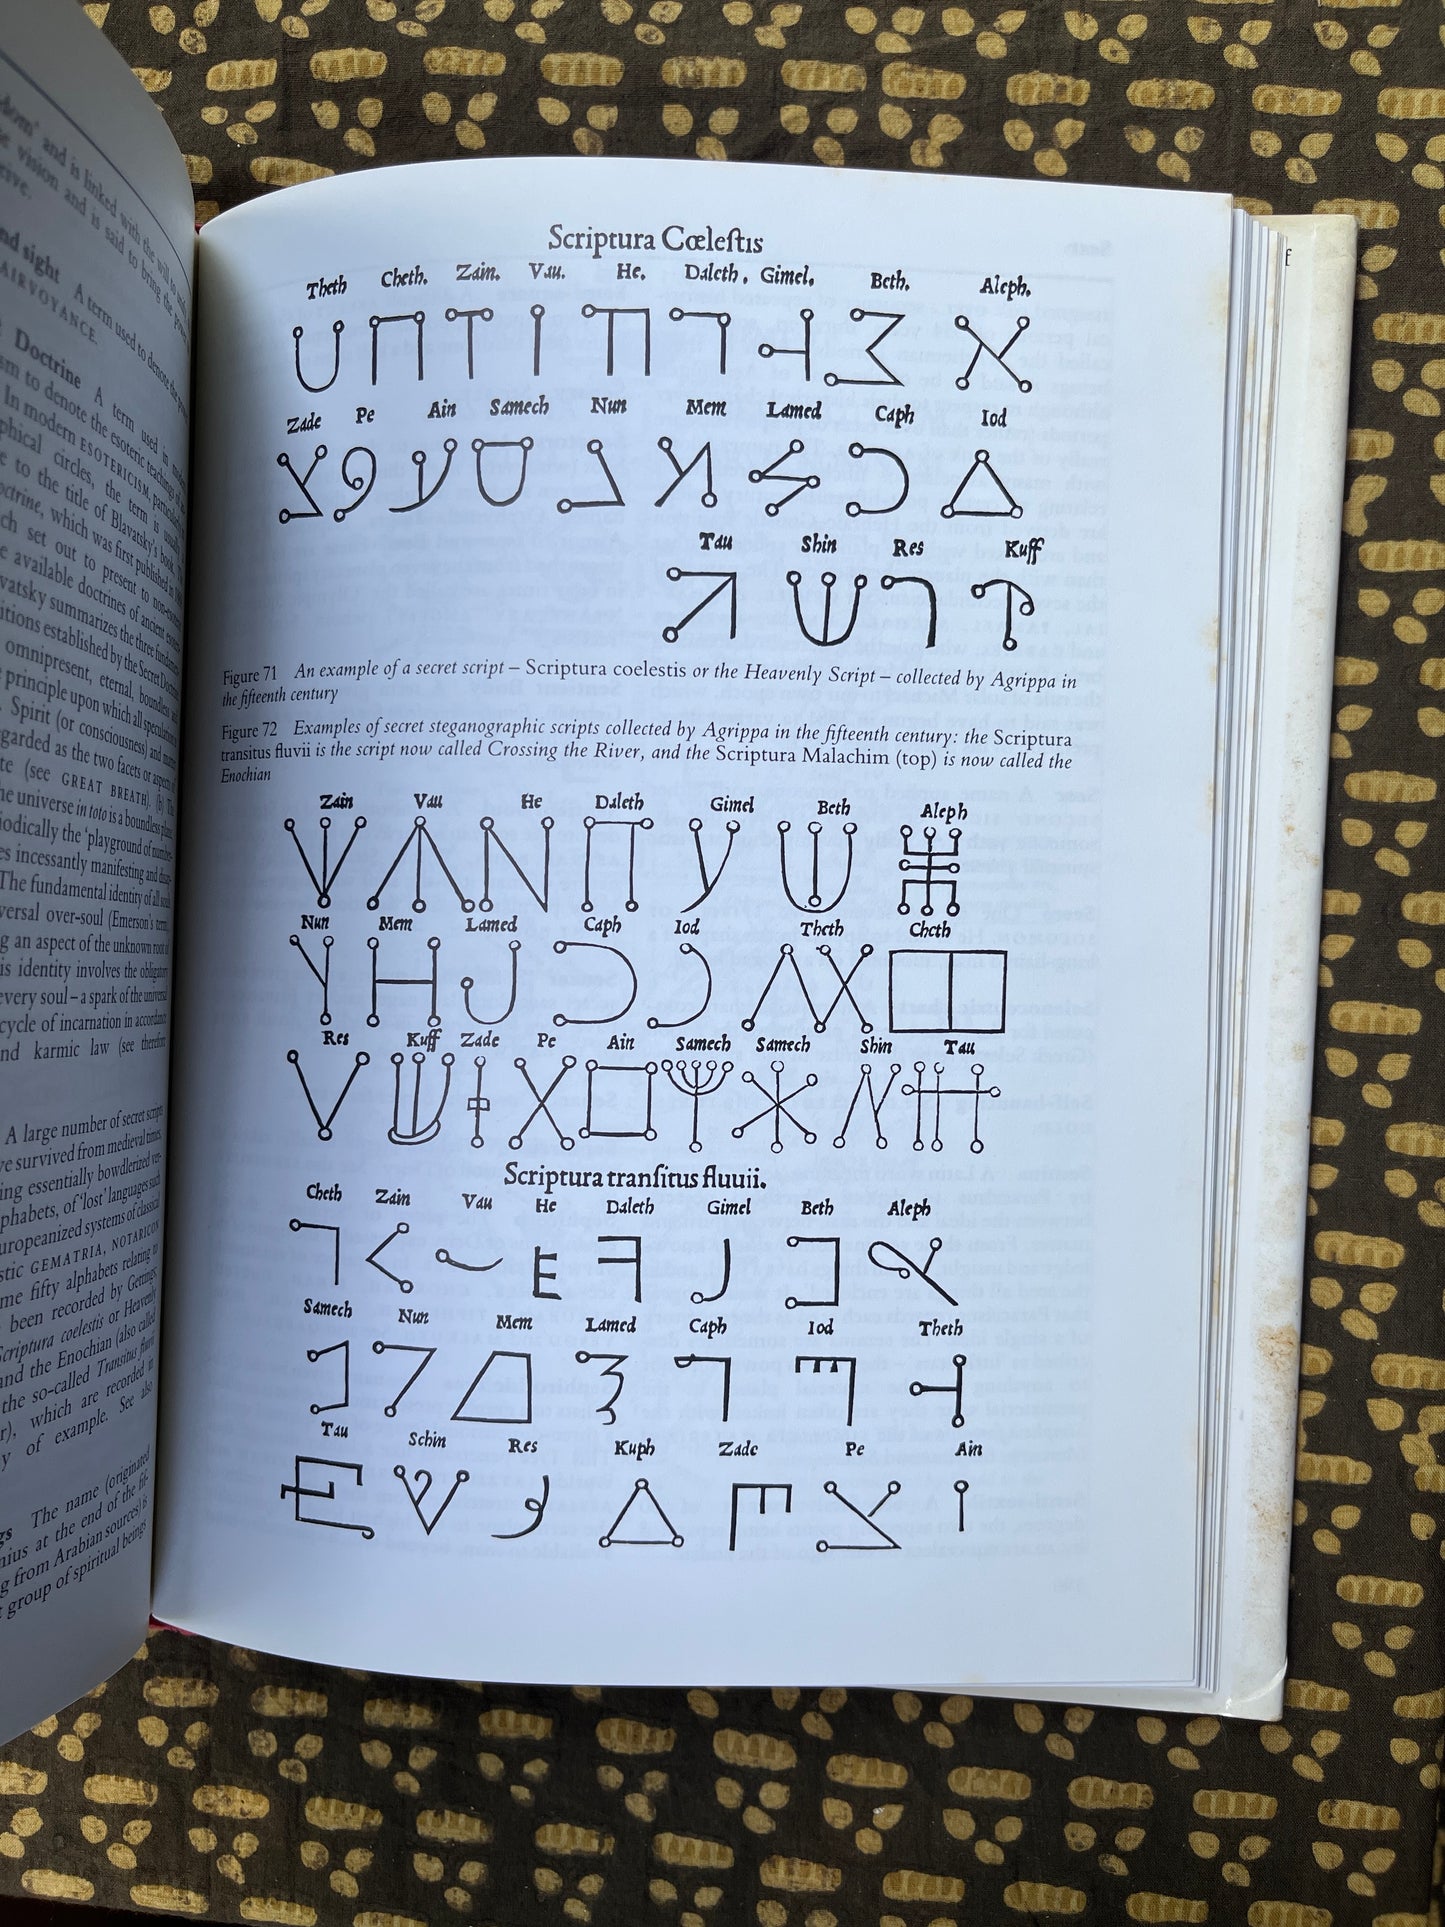 dom' and is linked with the will to
vision and is said to bring the power,
erve.
nd sight A term used to denote the
AIRVOYANCE.
Doctrine A term used in
ism to denote the esoteric teachings of
In modern ESOTERICISM, particularly
phical circles, the term is usually
e to the title of Blavatsky's book,
octrine, which was first published in
ch set out to present to
e available doctrines of ancient
vatsky summarizes the three fundamental
itions established by the Secret Doctrine
omnipresent, eternal, boundless and
e principle upon which all speculation
Spirit (or consciousness) and matter
garded as the two facets or aspects of
te (see GREAT BREATH). (b) The
he universe in toto is a boundless plane,
iodically the 'playground of
es incessantly manifesting and
The fundamental identity of all souls
versal over-soul (Emerson's term),
g an aspect of the unknown root of
is identity involves the obligatory
every soul – a spark of the universal
cycle of incarnation in accordance
nd karmic law (see therefore
A large number of secret scripts
ve survived from medieval times,
ing essentially bowdlerized
phabets, of 'lost' languages such
uropeanized systems of classical
stic GEMATRIA, NOTARICON
me fifty alphabets relating to
been recorded by Gettings:
Scriptura coelestis or Heavenly
and the Enochian (also called
the so-called Transitus fluvii
r), which are recorded in
y of example. See also
gs The name (originated
nius at the end of the
g from Arabian sources) is
t group of spiritual beings
Scriptura Cœleſtis
Theth Cheth. Zain. Vau. He. Daleth. Gimel. Beth. Aleph.
Zade Pe Ain Samech Nun Mem Lamed Caph Iod
Tau Shin Res Kuff
Figure 71 An example of a secret script – Scriptura coelestis or the Heavenly Script – collected by Agrippa in
the fifteenth century
Figure 72 Examples of secret steganographic scripts collected by Agrippa in the fifteenth century: the Scriptura
transitus fluvii is the script now called Crossing the River, and the Scriptura Malachim (top) is now called the
Enochian
Zain Vau He Daleth Gimel Beth Aleph
Nun Mem Lamed Caph Iod Theth Cheth
Res Kuff Zade Pe Ain Samech Samech Shin Tau
Scriptura tranſitus fluuii.
Cheth Zain Vau He Daleth Gimel Beth Aleph
Samech Nun Mem Lamed Caph Iod Theth
Tau Schin Res Kuph Zade Pe Ain
f